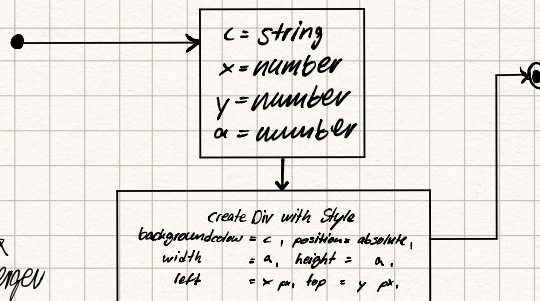 c = string
x = number
y = number
a = number
create Div with Style
backgroundcolow = c, position = absolute,
width = a, height = a,
left = x px, top = y px,